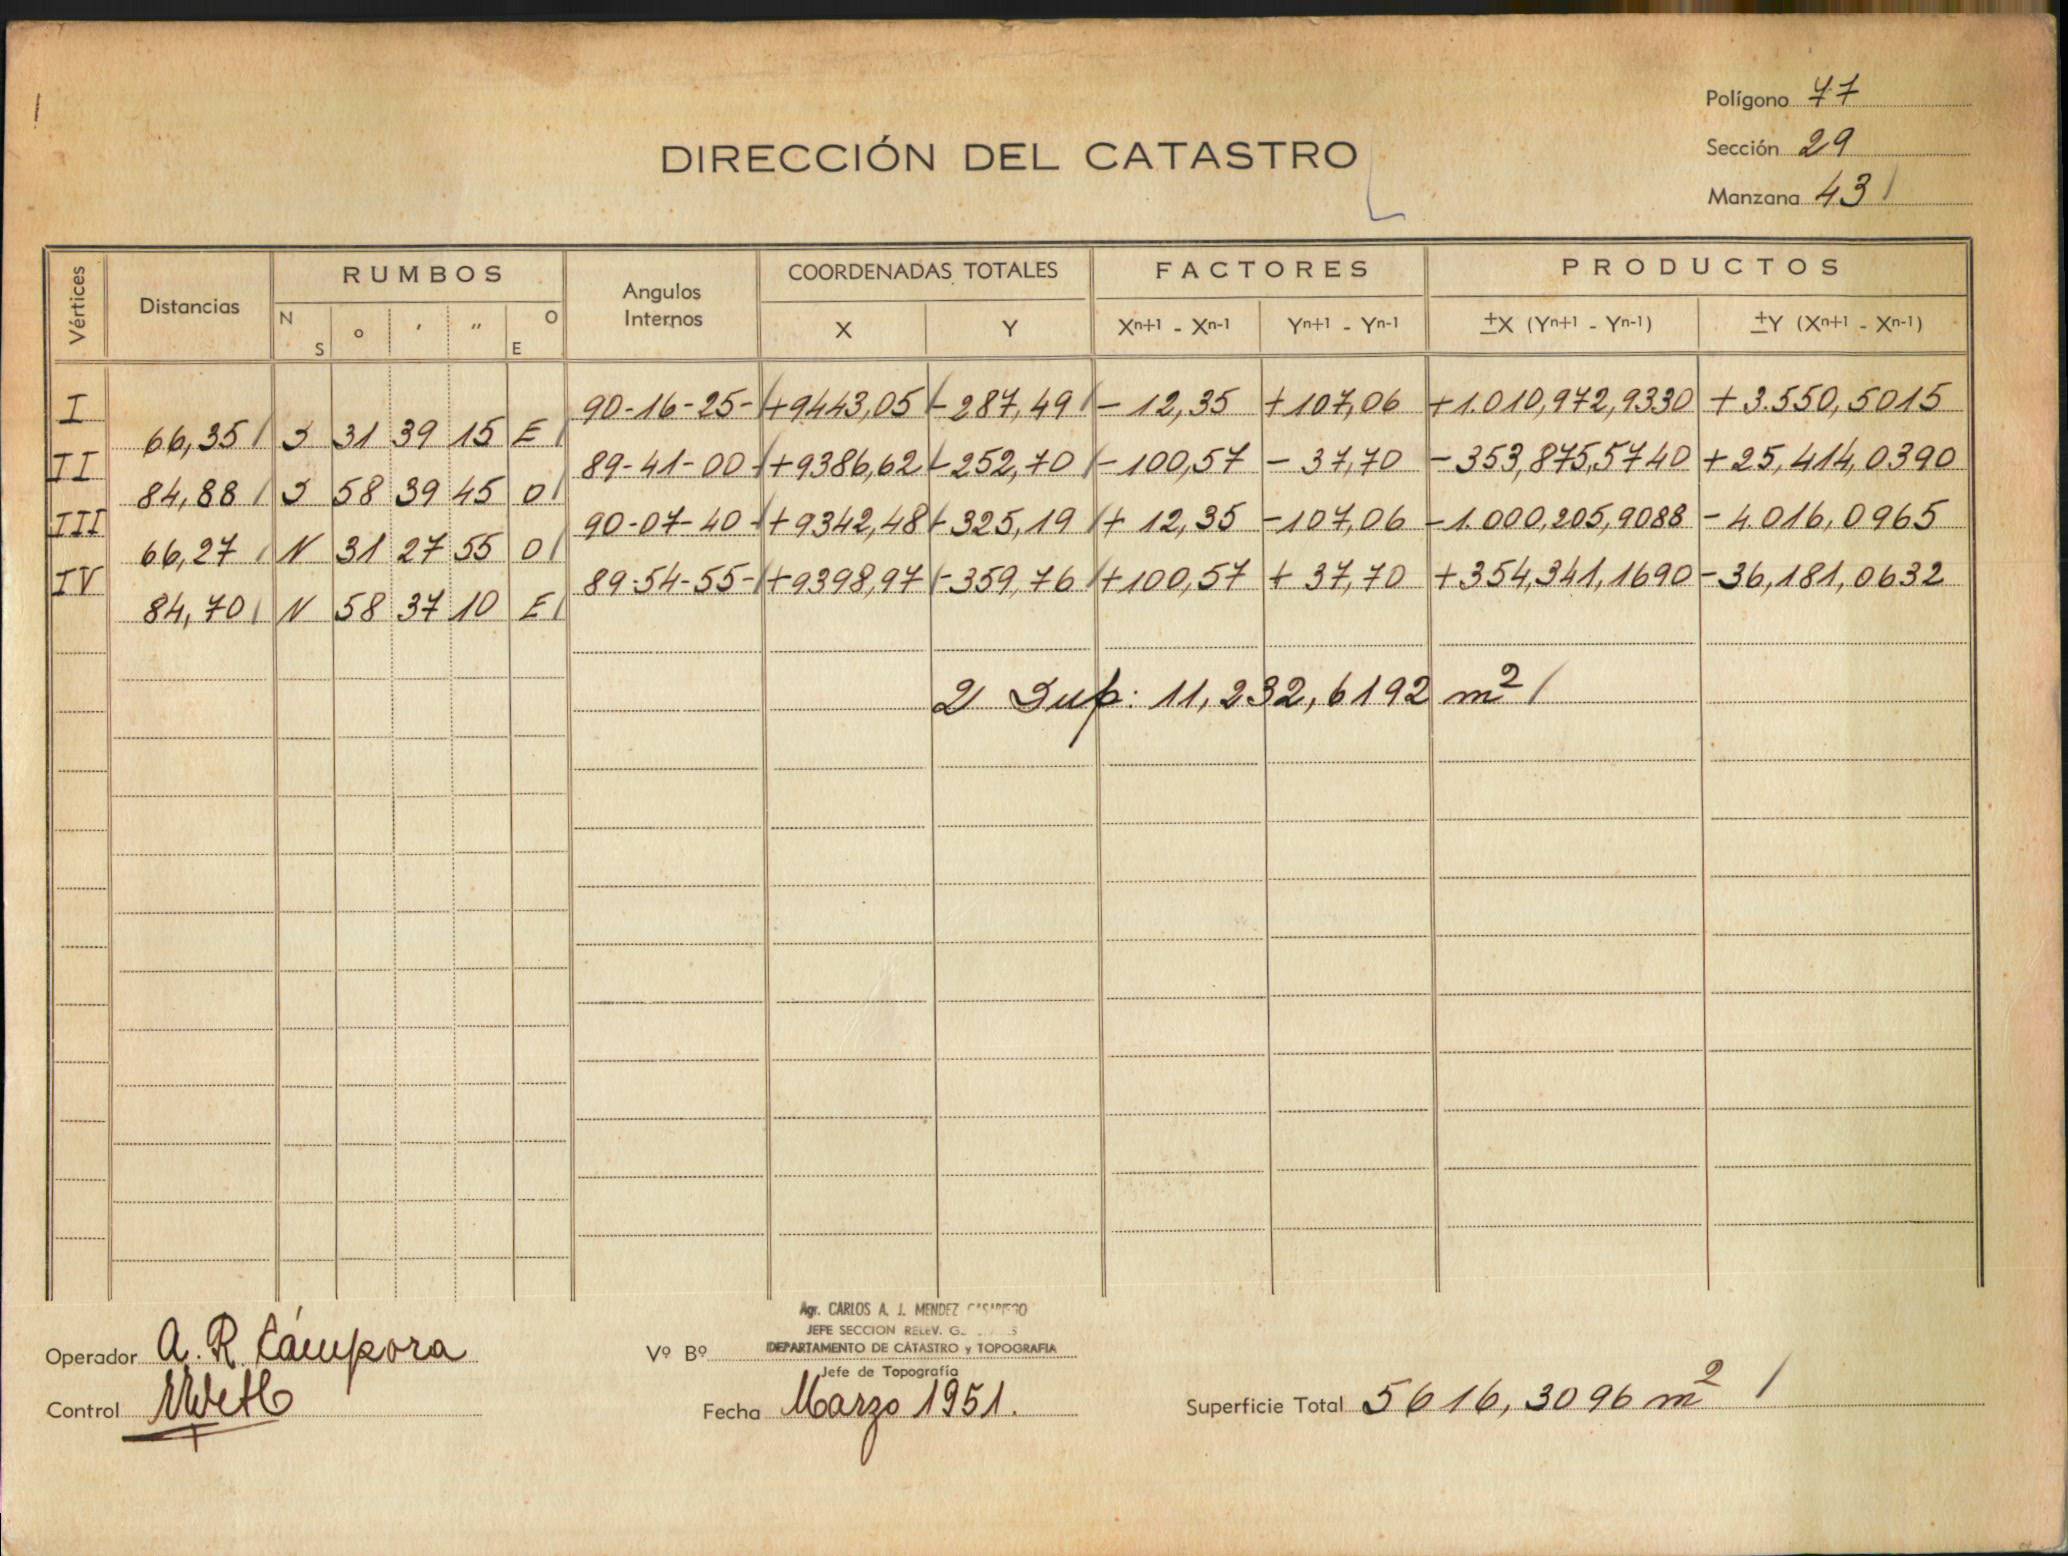 Polígono 77
DIRECCIÓN DEL CATASTRO
Sección 29
Manzana 43
Vértices Distancias RUMBOS Angulos Internos COORDENADAS TOTALES FACTORES PRODUCTOS
N S ° ' " O E X Y Xn+1 - Xn-1 Yn+1 - Yn-1 ±X (Yn+1 - Yn-1) ±Y (Xn+1 - Xn-1)
I 90-16-25- +9443,05 -287,49 -12,35 +107,06 +1.010,972,9330 +3.550,5015
66,35 S 31 39 15 E
II 89-41-00 +9386,62 -252,70 -100,57 -37,70 -353,875,5740 +25,414,0390
84,88 S 58 39 45 O
III 90-07-40- +9342,48 -325,19 +12,35 -107,06 -1.000,205,9088 -4.016,0965
66,27 N 31 27 55 O
IV 89-54-55- +9398,97 -359,76 +100,57 +37,70 +354,341,1690 -36,181,0632
84,70 N 58 37 10 E
2 Sup: 11,232,6192 m²
Agr. CARLOS A. J. MENDEZ CASARIEGO
JEFE SECCION RELEV.
Operador A. R. Cámpora Vº Bº DEPARTAMENTO DE CATASTRO y TOPOGRAFIA
Jefe de Topografía
Control Fecha Marzo 1951. Superficie Total 5616,3096 m²